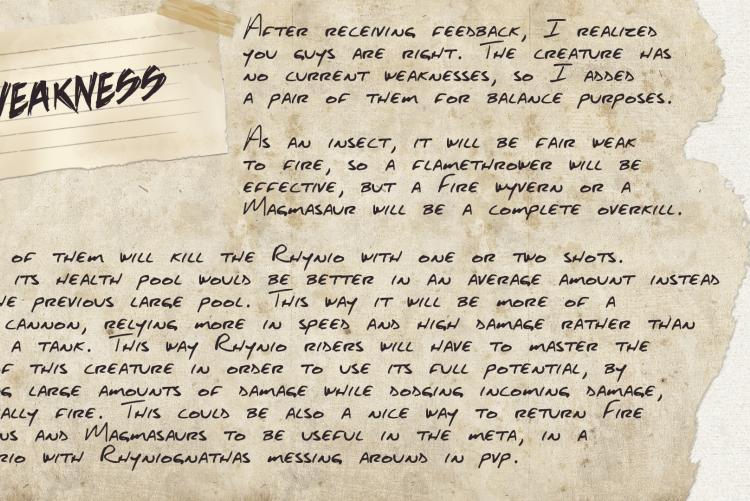 WEAKNESS
After receiving feedback, I realized
you guys are right. The creature has
no current weaknesses, so I added
a pair of them for balance purposes.
As an insect, it will be fair weak
to fire, so a flamethrower will be
effective, but a Fire wyvern or a
Magmasaur will be a complete overkill.
of them will kill the Rhynio with one or two shots.
its health pool would be better in an average amount instead
previous large pool. This way it will be more of a
cannon, relying more in speed and high damage rather than
a tank. This way Rhynio riders will have to master the
of this creature in order to use its full potential, by
large amounts of damage while dodging incoming damage,
fire. This could be also a nice way to return Fire
and Magmasaurs to be useful in the meta, in a
with Rhyniognathas messing around in pvp.